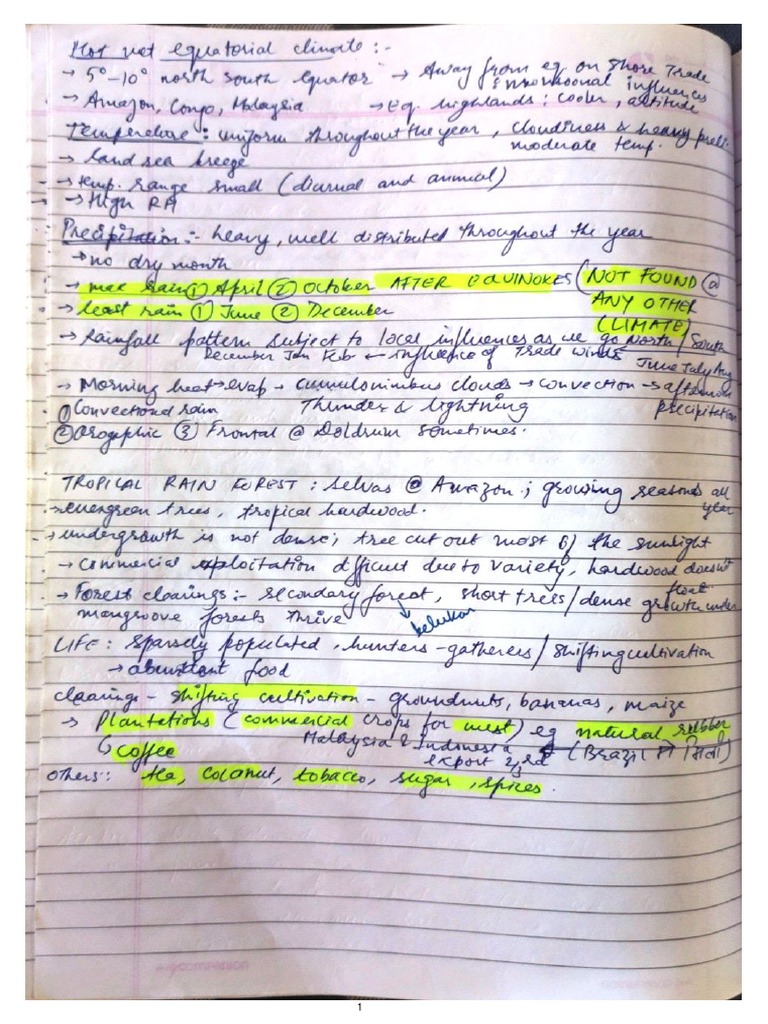 Hot wet equatorial climate :-
→ 5°-10° north south equator → Away from eq. on shore Trade
& monsoonal influences
→ Amazon, Congo, Malaysia → Eq. highlands : cooler, altitude
Temperature : uniform throughout the year, cloudiness & heavy preci.
moderate temp.
→ land sea breeze
→ temp. range small (diurnal and annual)
→ High RH
Precipitation :- heavy, well distributed throughout the year
→ no dry month
→ max rain ① April ② October AFTER EQUINOXES (NOT FOUND @
ANY OTHER
CLIMATE)
→ least rain ① June ② December
→ Rainfall pattern subject to local influences as we go North / South
December Jan Feb ← influence of Trade winds June July Aug
→ Morning heat → evap → cumulonimbus clouds → convection → afternoon
precipitation
① Convectional rain Thunder & lightning
② Orographic ③ Frontal @ Doldrum sometimes.
TROPICAL RAIN FOREST : Selvas @ Amazon ; growing seasons all
year
→ evergreen trees, tropical hardwood.
→ undergrowth is not dense; tree cut out most of the sunlight
→ commercial exploitation difficult due to variety, hardwood doesn't
float
→ Forest clearings :- secondary forest, short trees / dense growth under
belukar
mangroove forests thrive
LIFE : sparsely populated, hunters-gatherers / Shifting cultivation
→ abundant food
clearings - shifting cultivation - groundnuts, bananas, maize
→ Plantations (commercial crops for west) eg natural rubber
Malaysia & Indonesia
export 2/3rd
(Brazil में मिला)
↳ coffee
others : tea, coconut, tobacco, sugar, spices.
1